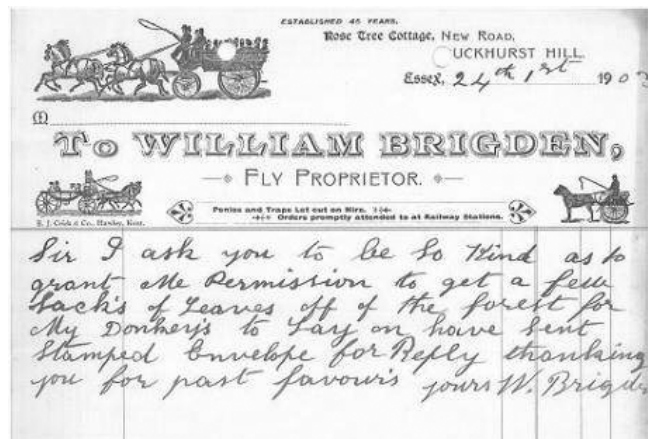 ESTABLISHED 45 YEARS.
Rose Tree Cottage, NEW ROAD,
UCKHURST HILL
Essex, 24th 1st 1903
TO WILLIAM BRIGDEN,
FLY PROPRIETOR.
Ponies and Traps Let out on Hire.
Orders promptly attended to at Railway Stations.
Sir I ask you to be So Kind as to
grant Me Permission to get a few
Sack's of Leaves off of the forest for
My Donkeys to Lay on have Sent
Stamped Envelope for Reply thanking
you for past favours yours W. Brigden